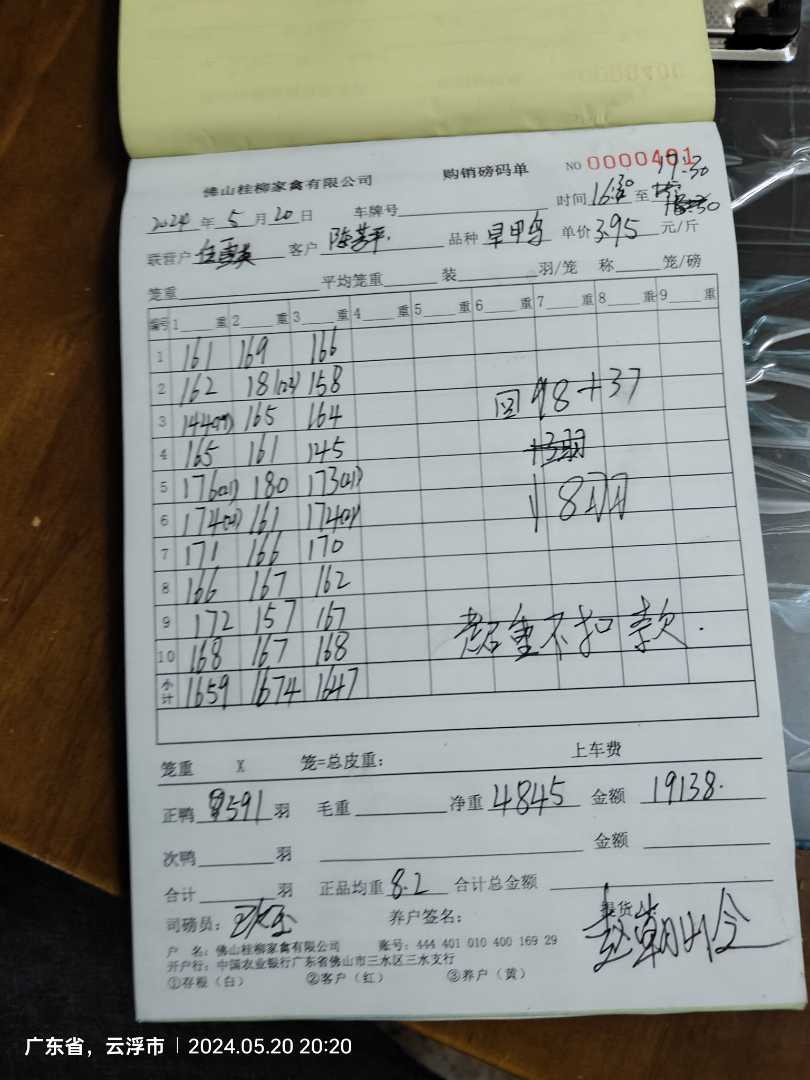 佛山桂柳家禽有限公司 购销磅码单 NO 0000401
2024年5月20日 车牌号 时间16:30至17:30
联营户 客户 陈芳平 品种 早甲鸟 单价3.95元/斤
笼重 平均笼重 装 羽/笼 称 笼/磅
编号 1 重 2 重 3 重 4 重 5 重 6 重 7 重 8 重 9 重
1 161 169 166
2 162 181(22) 158
3 144 165 164
4 165 161 145
5 176(21) 180 173(21)
6 174(21) 161 174(21)
7 171 166 170
8 166 167 162
9 172 157 167
10 168 167 168
小计 1659 1674 1647
回 98+37
超重不扣款.
笼重 X 笼=总皮重: 上车费
正鸭 591 羽 毛重 净重 4845 金额 19138.
次鸭 羽 金额
合计 羽 正品均重 8.2 合计总金额
司磅员: 养户签名: 提货人:
户 名: 佛山桂柳家禽有限公司 账号: 444 401 010 400 169 29
开户行: 中国农业银行广东省佛山市三水区三水支行
①存根(白) ②客户(红) ③养户(黄)
广东省，云浮市 | 2024.05.20 20:20